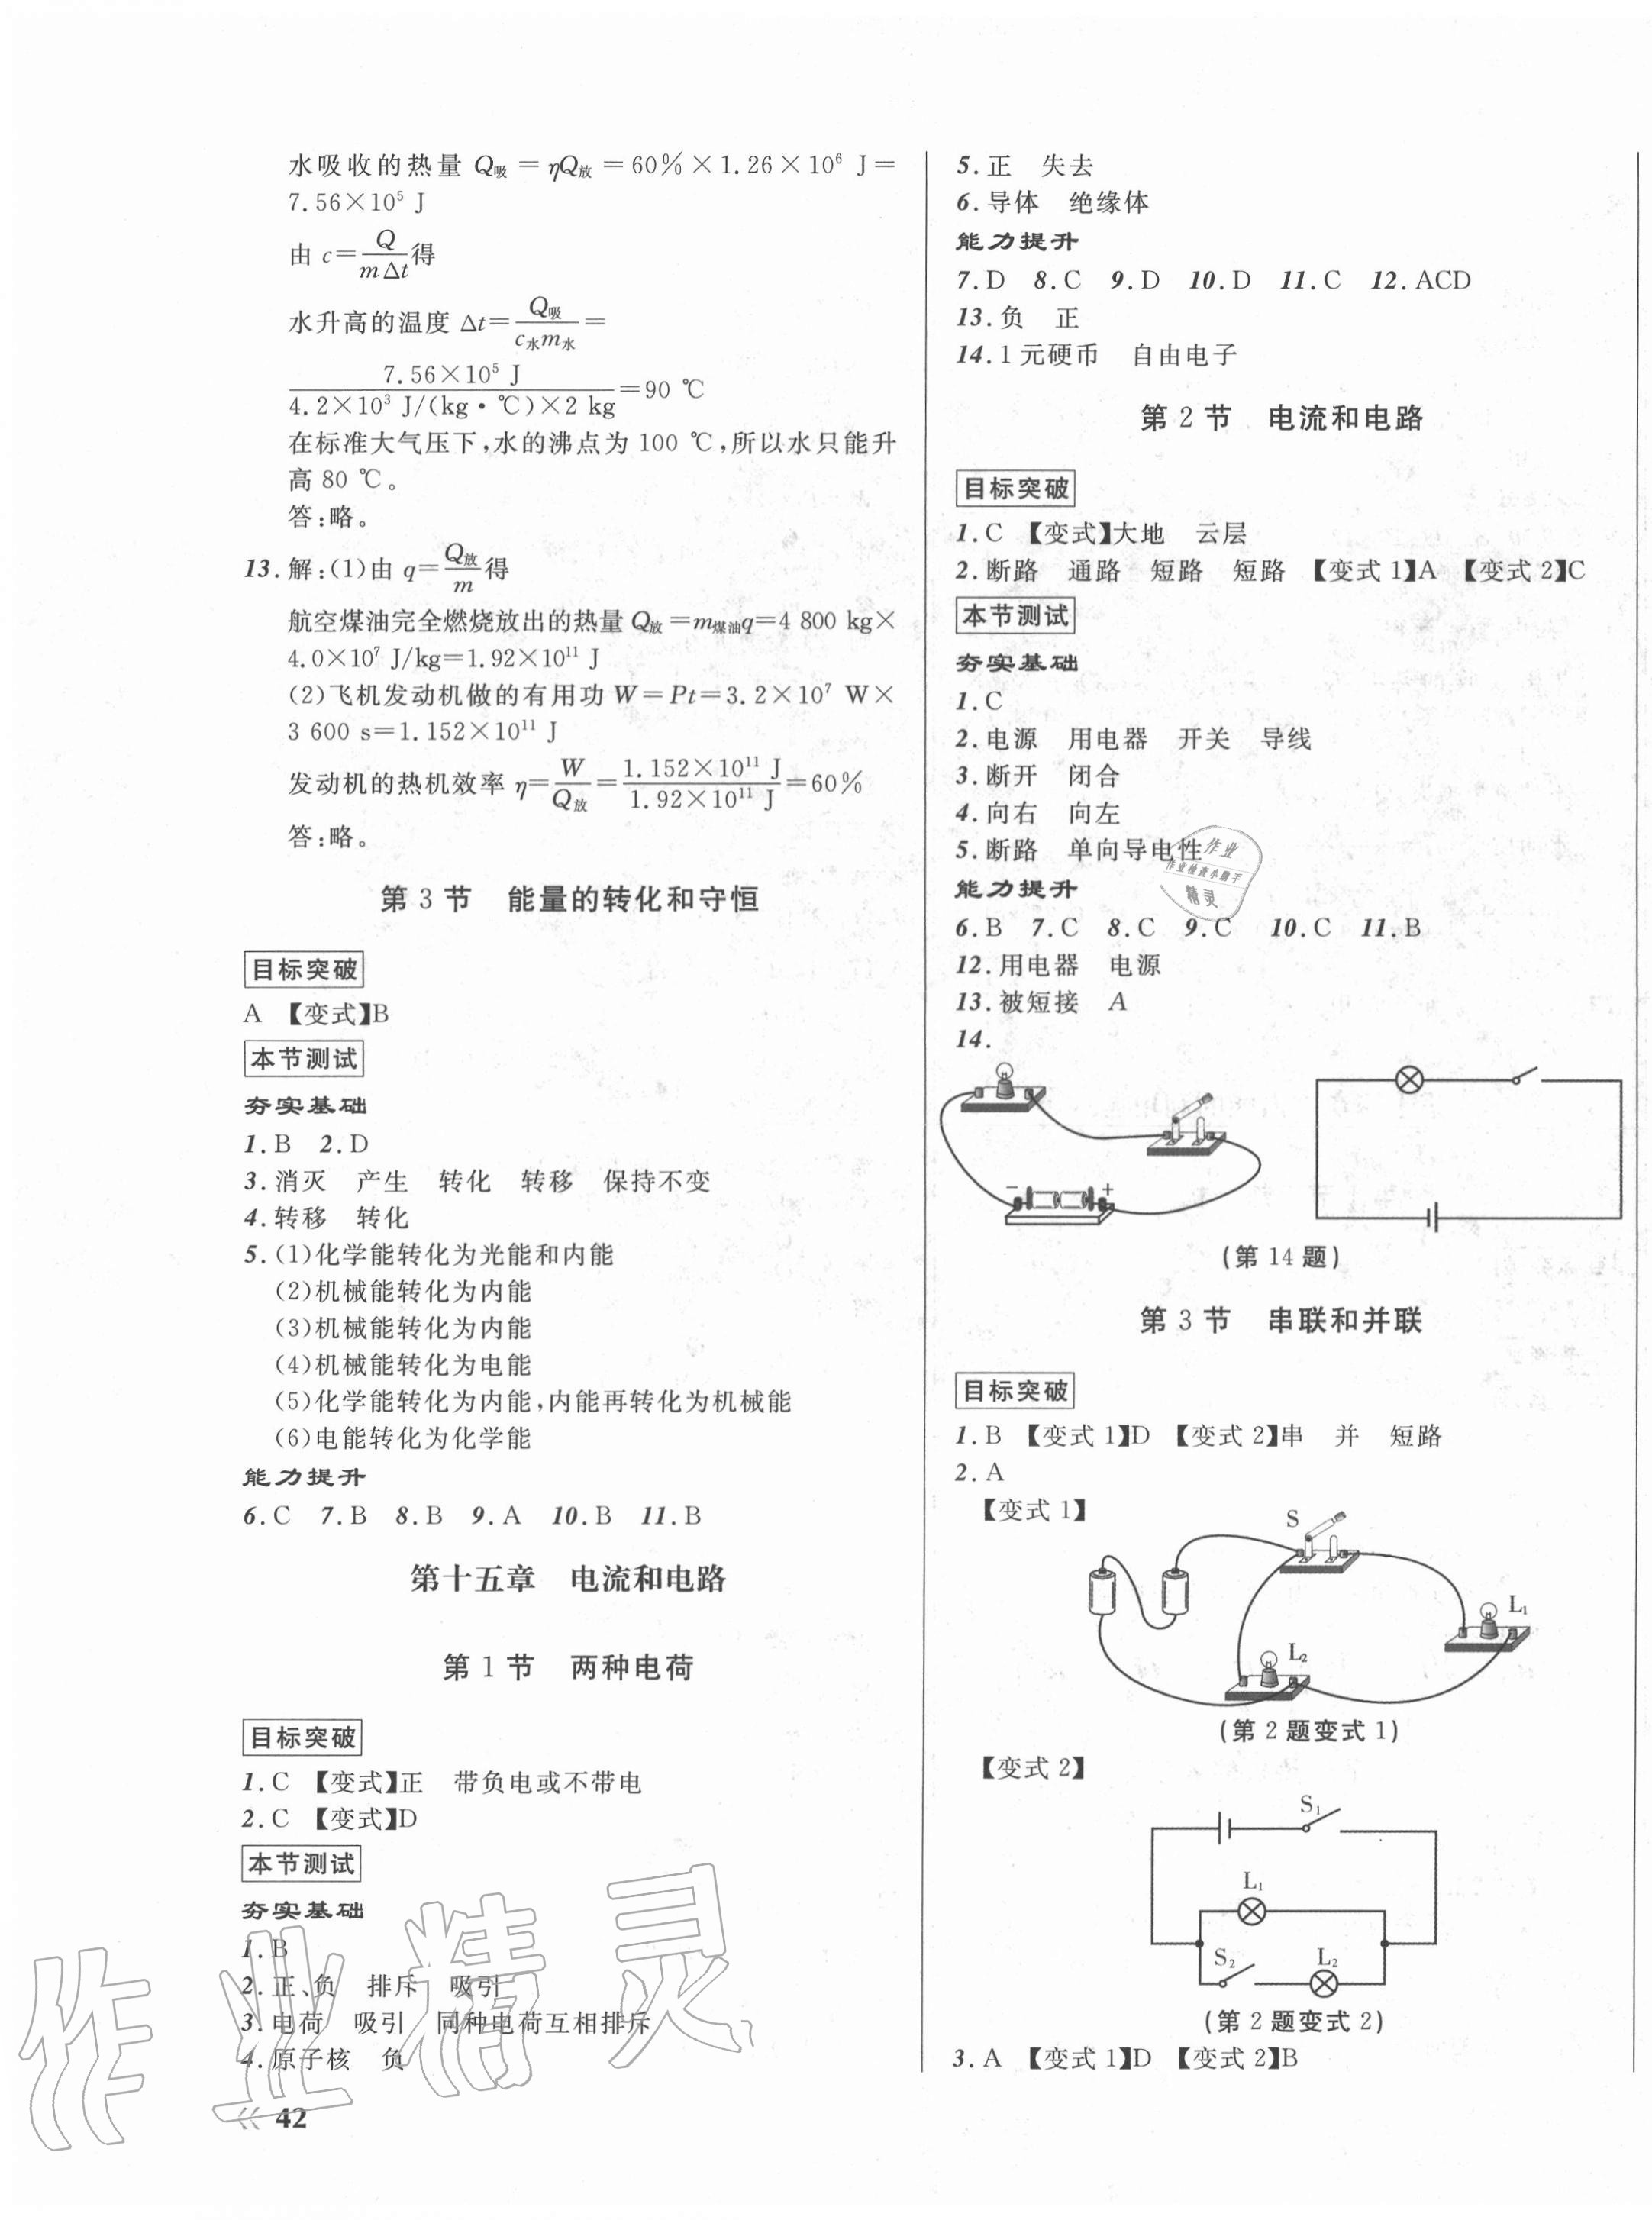 水吸收的热量 Q吸＝ηQ放＝60%×1.26×10⁶ J＝
7.56×10⁵ J
由 c＝Q/(mΔt)得
水升高的温度 Δt＝Q吸/(c水m水)＝
7.56×10⁵ J/(4.2×10³ J/(kg·℃)×2 kg)＝90 ℃
在标准大气压下,水的沸点为 100 ℃,所以水只能升
高 80 ℃。
答:略。
13.解:(1)由 q＝Q放/m得
航空煤油完全燃烧放出的热量 Q放＝m煤油q＝4 800 kg×
4.0×10⁷ J/kg＝1.92×10¹¹ J
(2)飞机发动机做的有用功 W＝Pt＝3.2×10⁷ W×
3 600 s＝1.152×10¹¹ J
发动机的热机效率 η＝W/Q放＝1.152×10¹¹ J/1.92×10¹¹ J＝60%
答:略。
第 3 节 能量的转化和守恒
目标突破
A 【变式】B
本节测试
夯实基础
1.B 2.D
3.消灭 产生 转化 转移 保持不变
4.转移 转化
5.(1)化学能转化为光能和内能
(2)机械能转化为内能
(3)机械能转化为内能
(4)机械能转化为电能
(5)化学能转化为内能,内能再转化为机械能
(6)电能转化为化学能
能力提升
6.C 7.B 8.B 9.A 10.B 11.B
第十五章 电流和电路
第 1 节 两种电荷
目标突破
1.C 【变式】正 带负电或不带电
2.C 【变式】D
本节测试
夯实基础
1.B
2.正、负 排斥 吸引
3.电荷 吸引 同种电荷互相排斥
4.原子核 负
42
作业精灵
5.正 失去
6.导体 绝缘体
能力提升
7.D 8.C 9.D 10.D 11.C 12.ACD
13.负 正
14.1 元硬币 自由电子
第 2 节 电流和电路
目标突破
1.C 【变式】大地 云层
2.断路 通路 短路 短路 【变式 1】A 【变式 2】C
本节测试
夯实基础
1.C
2.电源 用电器 开关 导线
3.断开 闭合
4.向右 向左
5.断路 单向导电性
作业
作业检查小助手
精灵
能力提升
6.B 7.C 8.C 9.C 10.C 11.B
12.用电器 电源
13.被短接 A
14.
− +
(第 14 题)
第 3 节 串联和并联
目标突破
1.B 【变式 1】D 【变式 2】串 并 短路
2.A
【变式 1】
S
L₁
L₂
(第 2 题变式 1)
【变式 2】
S₁
L₁
S₂ L₂
(第 2 题变式 2)
3.A 【变式 1】D 【变式 2】B